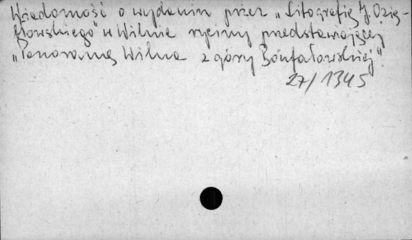 Wiadomość o wydaniu przez „Litografię J. Ozię-
błowskiego w Wilnie ryciny przedstawiającej
„Panoramę Wilna z góry Bonfałowskiej".
27/1345